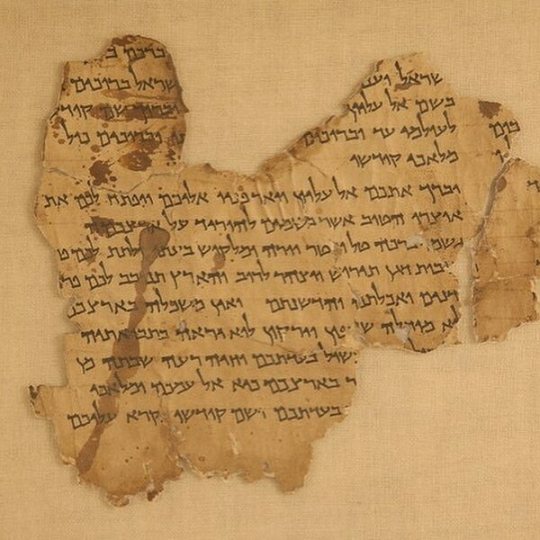 וברכם
ישראל ברוכים
בשם אל עליון וברוך שם קודשו
לעולמי עד וברוכים וברוכים כול
מלאכי קודשו
יברך אתכם אל עליון ויאר פניו אליכם ויפתח לכם את
אוצרו הטוב אשר בשמים להוריד על ארצכמה
גשמי ברכה טל ומטר יורה ומלקוש בעתו ולתת לכם פרי
תנובות דגן תירוש ויצהר לרוב והארץ תנובב לכם פרי
ואכלתם והדשנתם ואין משכלה בארצכם
מוחלה שדפון וירקון לוא יראה בתבואתיה
בעדתכם וחיה רעה שבתה מן
בארצכם כיא אל עמכם ומלאכי
בעדתכם ושם קודשו נקרא עליכם